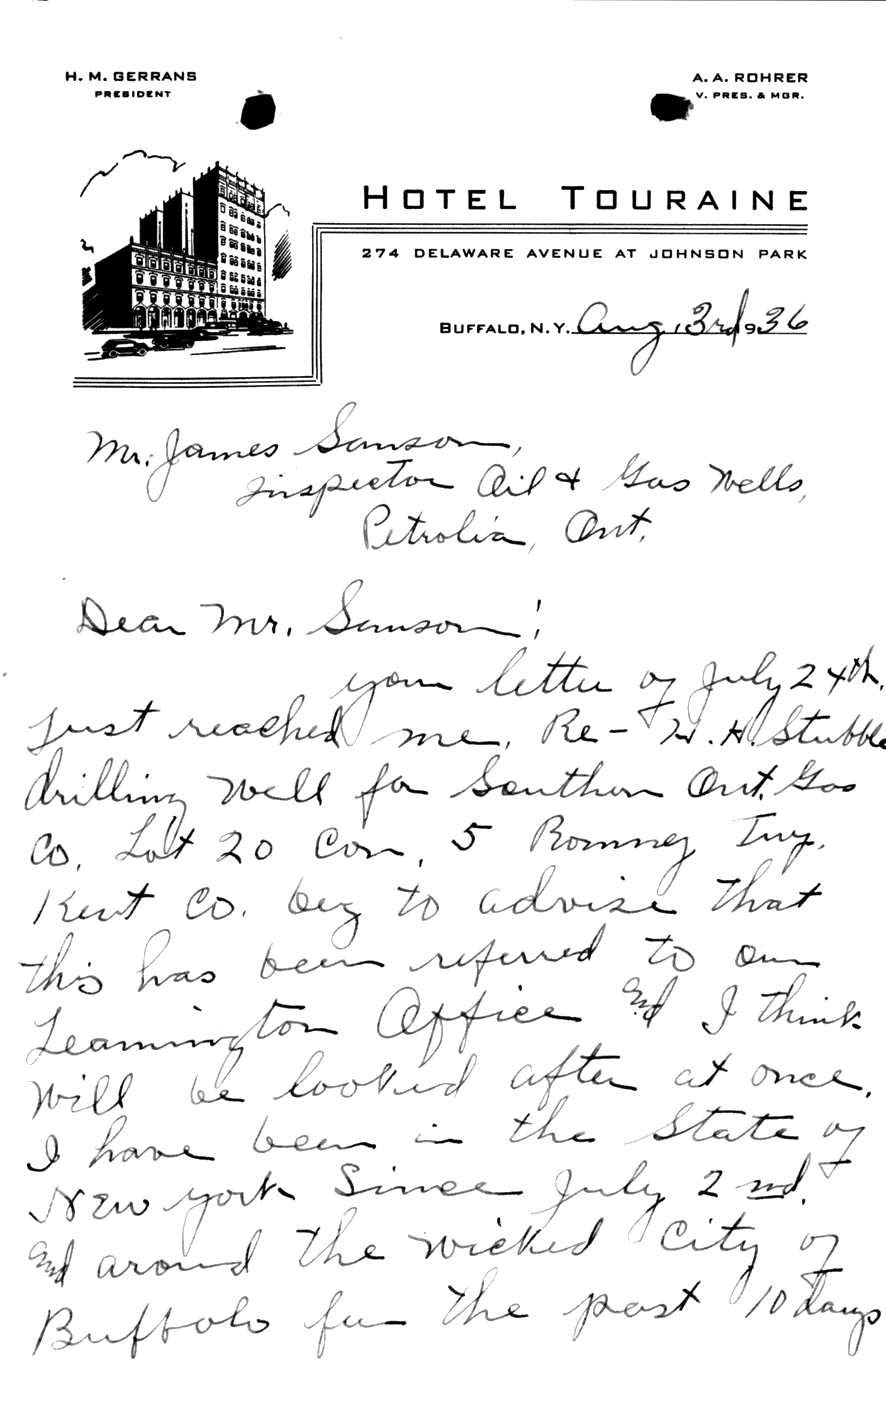 H. M. GERRANS
PRESIDENT
A. A. ROHRER
V. PRES. & MGR.
HOTEL TOURAINE
274 DELAWARE AVENUE AT JOHNSON PARK
BUFFALO, N.Y. Aug. 3rd 1936
Mr. James Samson,
Inspector Oil & Gas Wells,
Petrolia, Ont.
Dear Mr. Samson!
your letter of July 24th.
Just reached me. Re - H. H. Stubbs
drilling well for Southern Ont. Gas
Co. Lot 20 Con. 5 Romney Twp.
Kent Co. beg to advise that
this has been referred to our
Leamington Office and I think
will be looked after at once.
I have been in the State of
New york Since July 2nd.
and around the wicked City of
Buffalo for the past 10 days